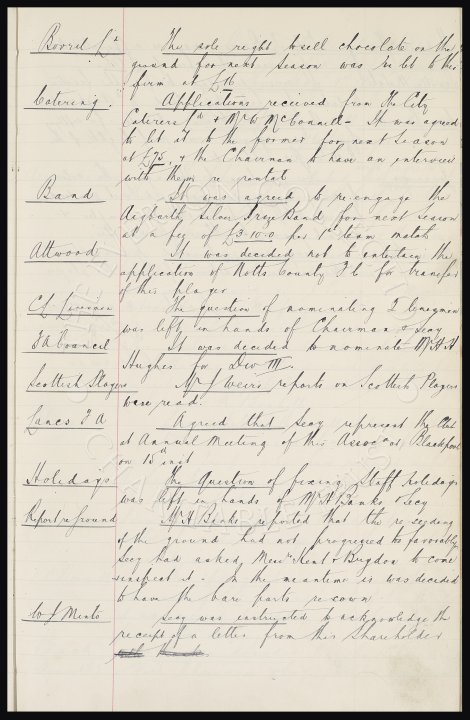 Bovril Ld The sole right to sell chocolate on the
ground for next season was re let to this
firm at £16
Catering. Applications received from The City
Caterers Ld & Mr W McConnell - It was agreed
to let it to the former for next season
at £75, & the Chairman to have an interview
with them re rental
Band It was agreed to re-engage the
Aigburth Silver Prize Band for next season
at a fee of £3.10.0 per 1st team match
Attwood It was decided not to entertain the
application of Notts County F C for transfer
of this player
The question of nominating 2 linesmen
was left in hands of Chairman & Secy
FA Council It was decided to nominate Mr A H
Hughes for Div III.
Scottish Players Mr J Weirs reports on Scottish Players
were read.
Lancs FA Agreed that Secy represent the Club
at Annual Meeting of this Assocn at Blackpool
on 15th inst
Holidays The Question of fixing Staff holidays
was left in hands of Mr H Banks & Secy
Report re ground Mr H Banks reported that the re seeding
of the ground had not progressed so favorably
Secy had asked Messrs Kent & Brydon to come
& inspect it - In the meantime it was decided
to have the bare parts re sown
W J Minto Secy was instructed to acknowledge the
receipt of a letter from this Shareholder